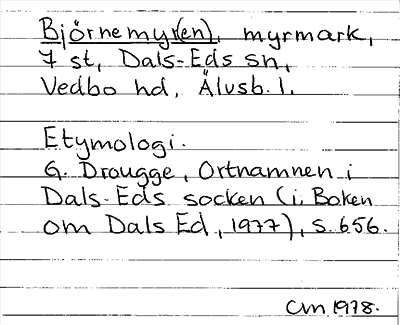 Björnemyr(en), myrmark,
7 st, Dals-Eds sn,
Vedbo hd, Älvsb. l.
Etymologi.
G. Drougge, Ortnamnen i
Dals-Eds socken (i Boken
om Dals Ed, 1977), s. 656.
CM 1978.